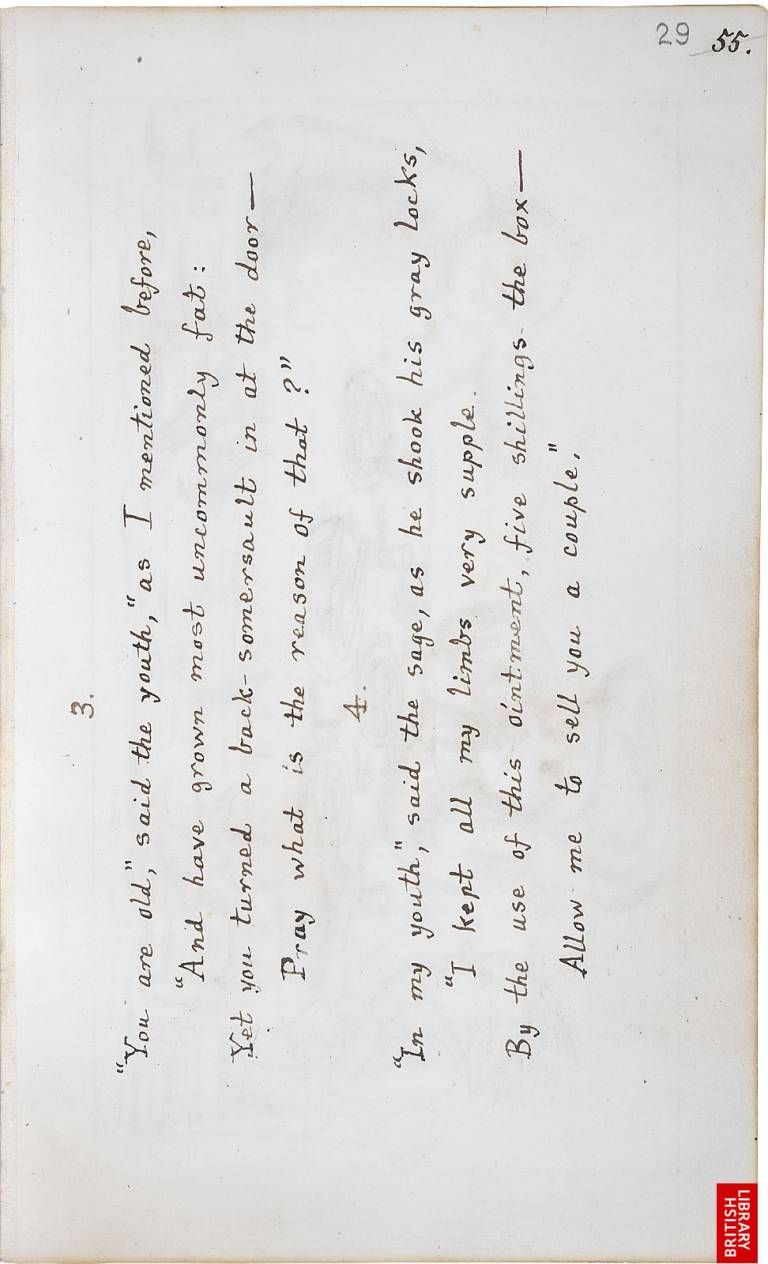 29 55.
3.
"You are old," said the youth, "as I mentioned before,
"And have grown most uncommonly fat:
Yet you turned a back-somersault in at the door—
Pray what is the reason of that?"
4.
"In my youth," said the sage, as he shook his gray locks,
"I kept all my limbs very supple.
By the use of this ointment, five shillings the box—
Allow me to sell you a couple."
BRITISH
LIBRARY